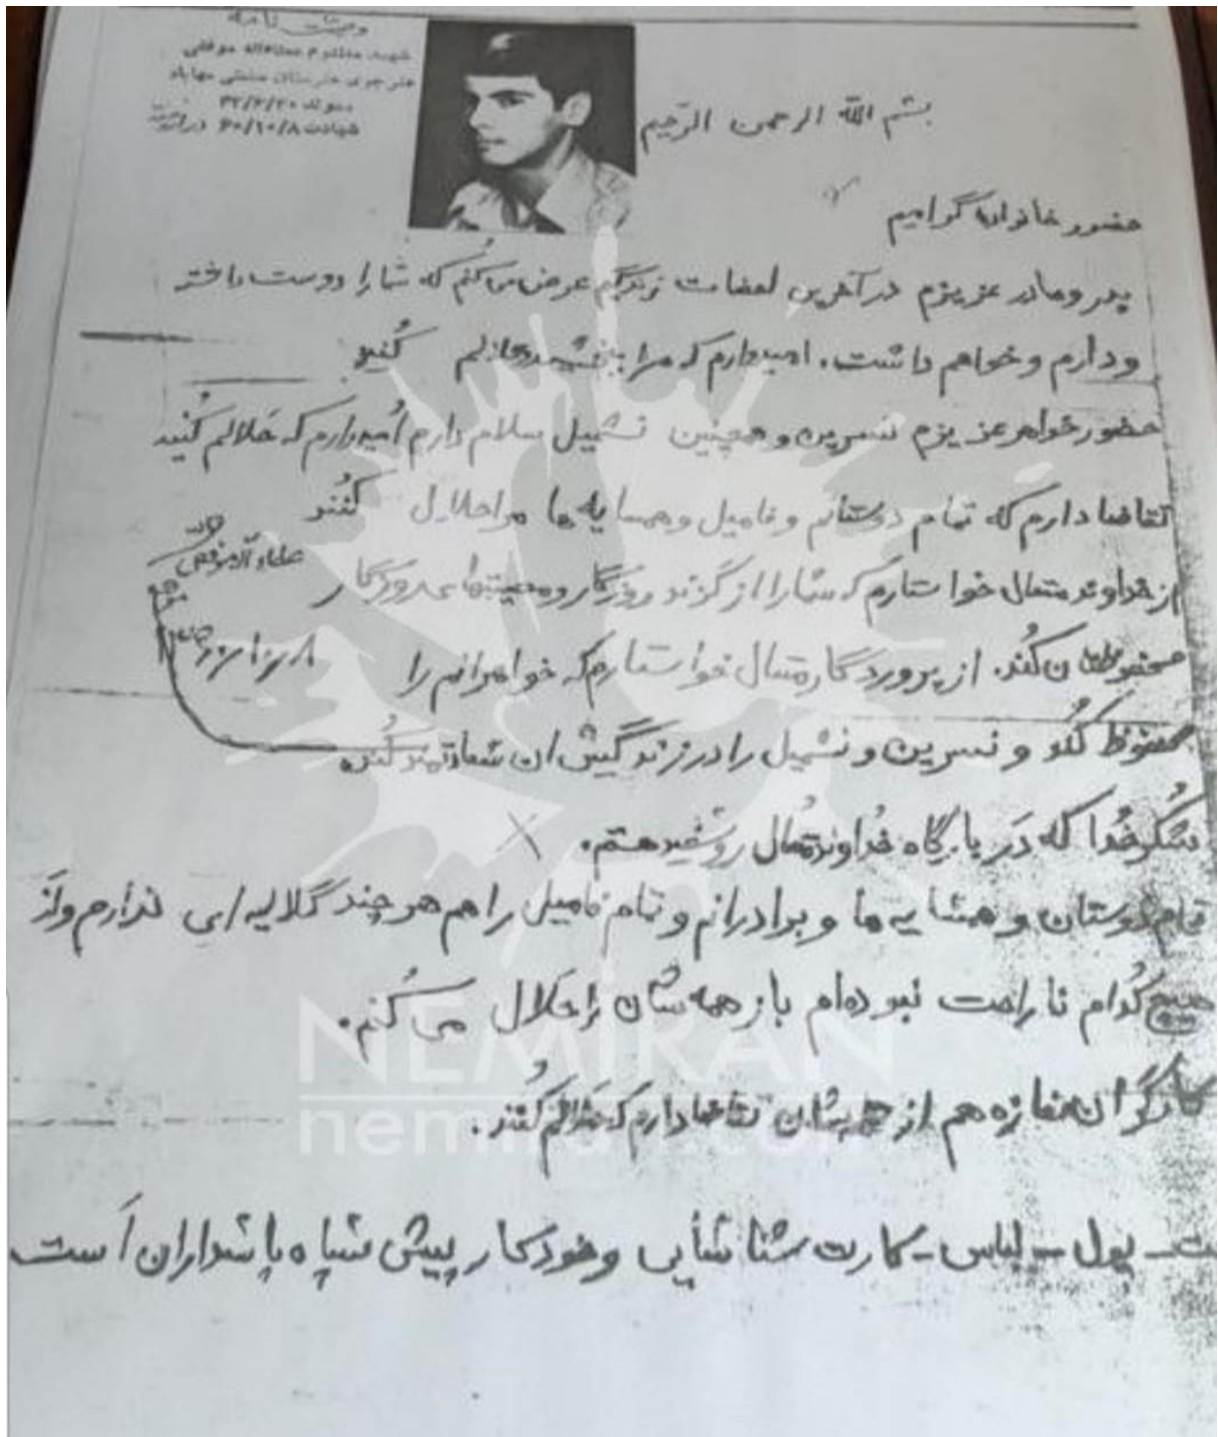 وصیت نامه
شهید مظلوم عطاءاله موفقی
هنرجوی هنرستان صنعتی مهاباد
شهادت ۶۰/۱۰/۸ در
بسم الله الرحمن الرحیم
حضور خانواده گرامیم
پدر و مادر عزیزم در آخرین لحضات زندگیم عرض می کنم که شما را دوست داشته
و دارم و خواهم داشت. امیدوارم که مرا کُنید
حضور خواهر عزیزم نسرین و همچنین نشمیل سلام دارم اُمیدوارم که حَلالم کُنید
تقاضا دارم که تمام دوستانم و فامیل و همسایه ها مرا حلال کُنند
از خداوند متعال خواستارم که شما را از گزند روزگار و مصیبتهای روزگار
محفوظتان کُند. از پروردگار متعال خواستارم که خواهرانم را
محفوظ کُند و نسرین و نشمیل را در زندگیش ان سعادتمند کُند
شُکر خُدا که دَر بارگاه خُداوند مُتعال روسفید هستم.
تمام دوستان و همسایه ها و برادرانم و تمام فامیل را هم هر چند گلایه ای ندارم و از
هیچ کُدام ناراحت نبوده ام باز همه شان را حَلال می کُنم.
کارگران مغازه هم از همه شان تقاضا دارم که کُنند.
پول - لباس - کارت شناسأیی و خودکار پیش سپاه پاسداران اَست
عطاءاله موفقی
۶۰/۱۰/۸
NEMIRAN
nemiran.com